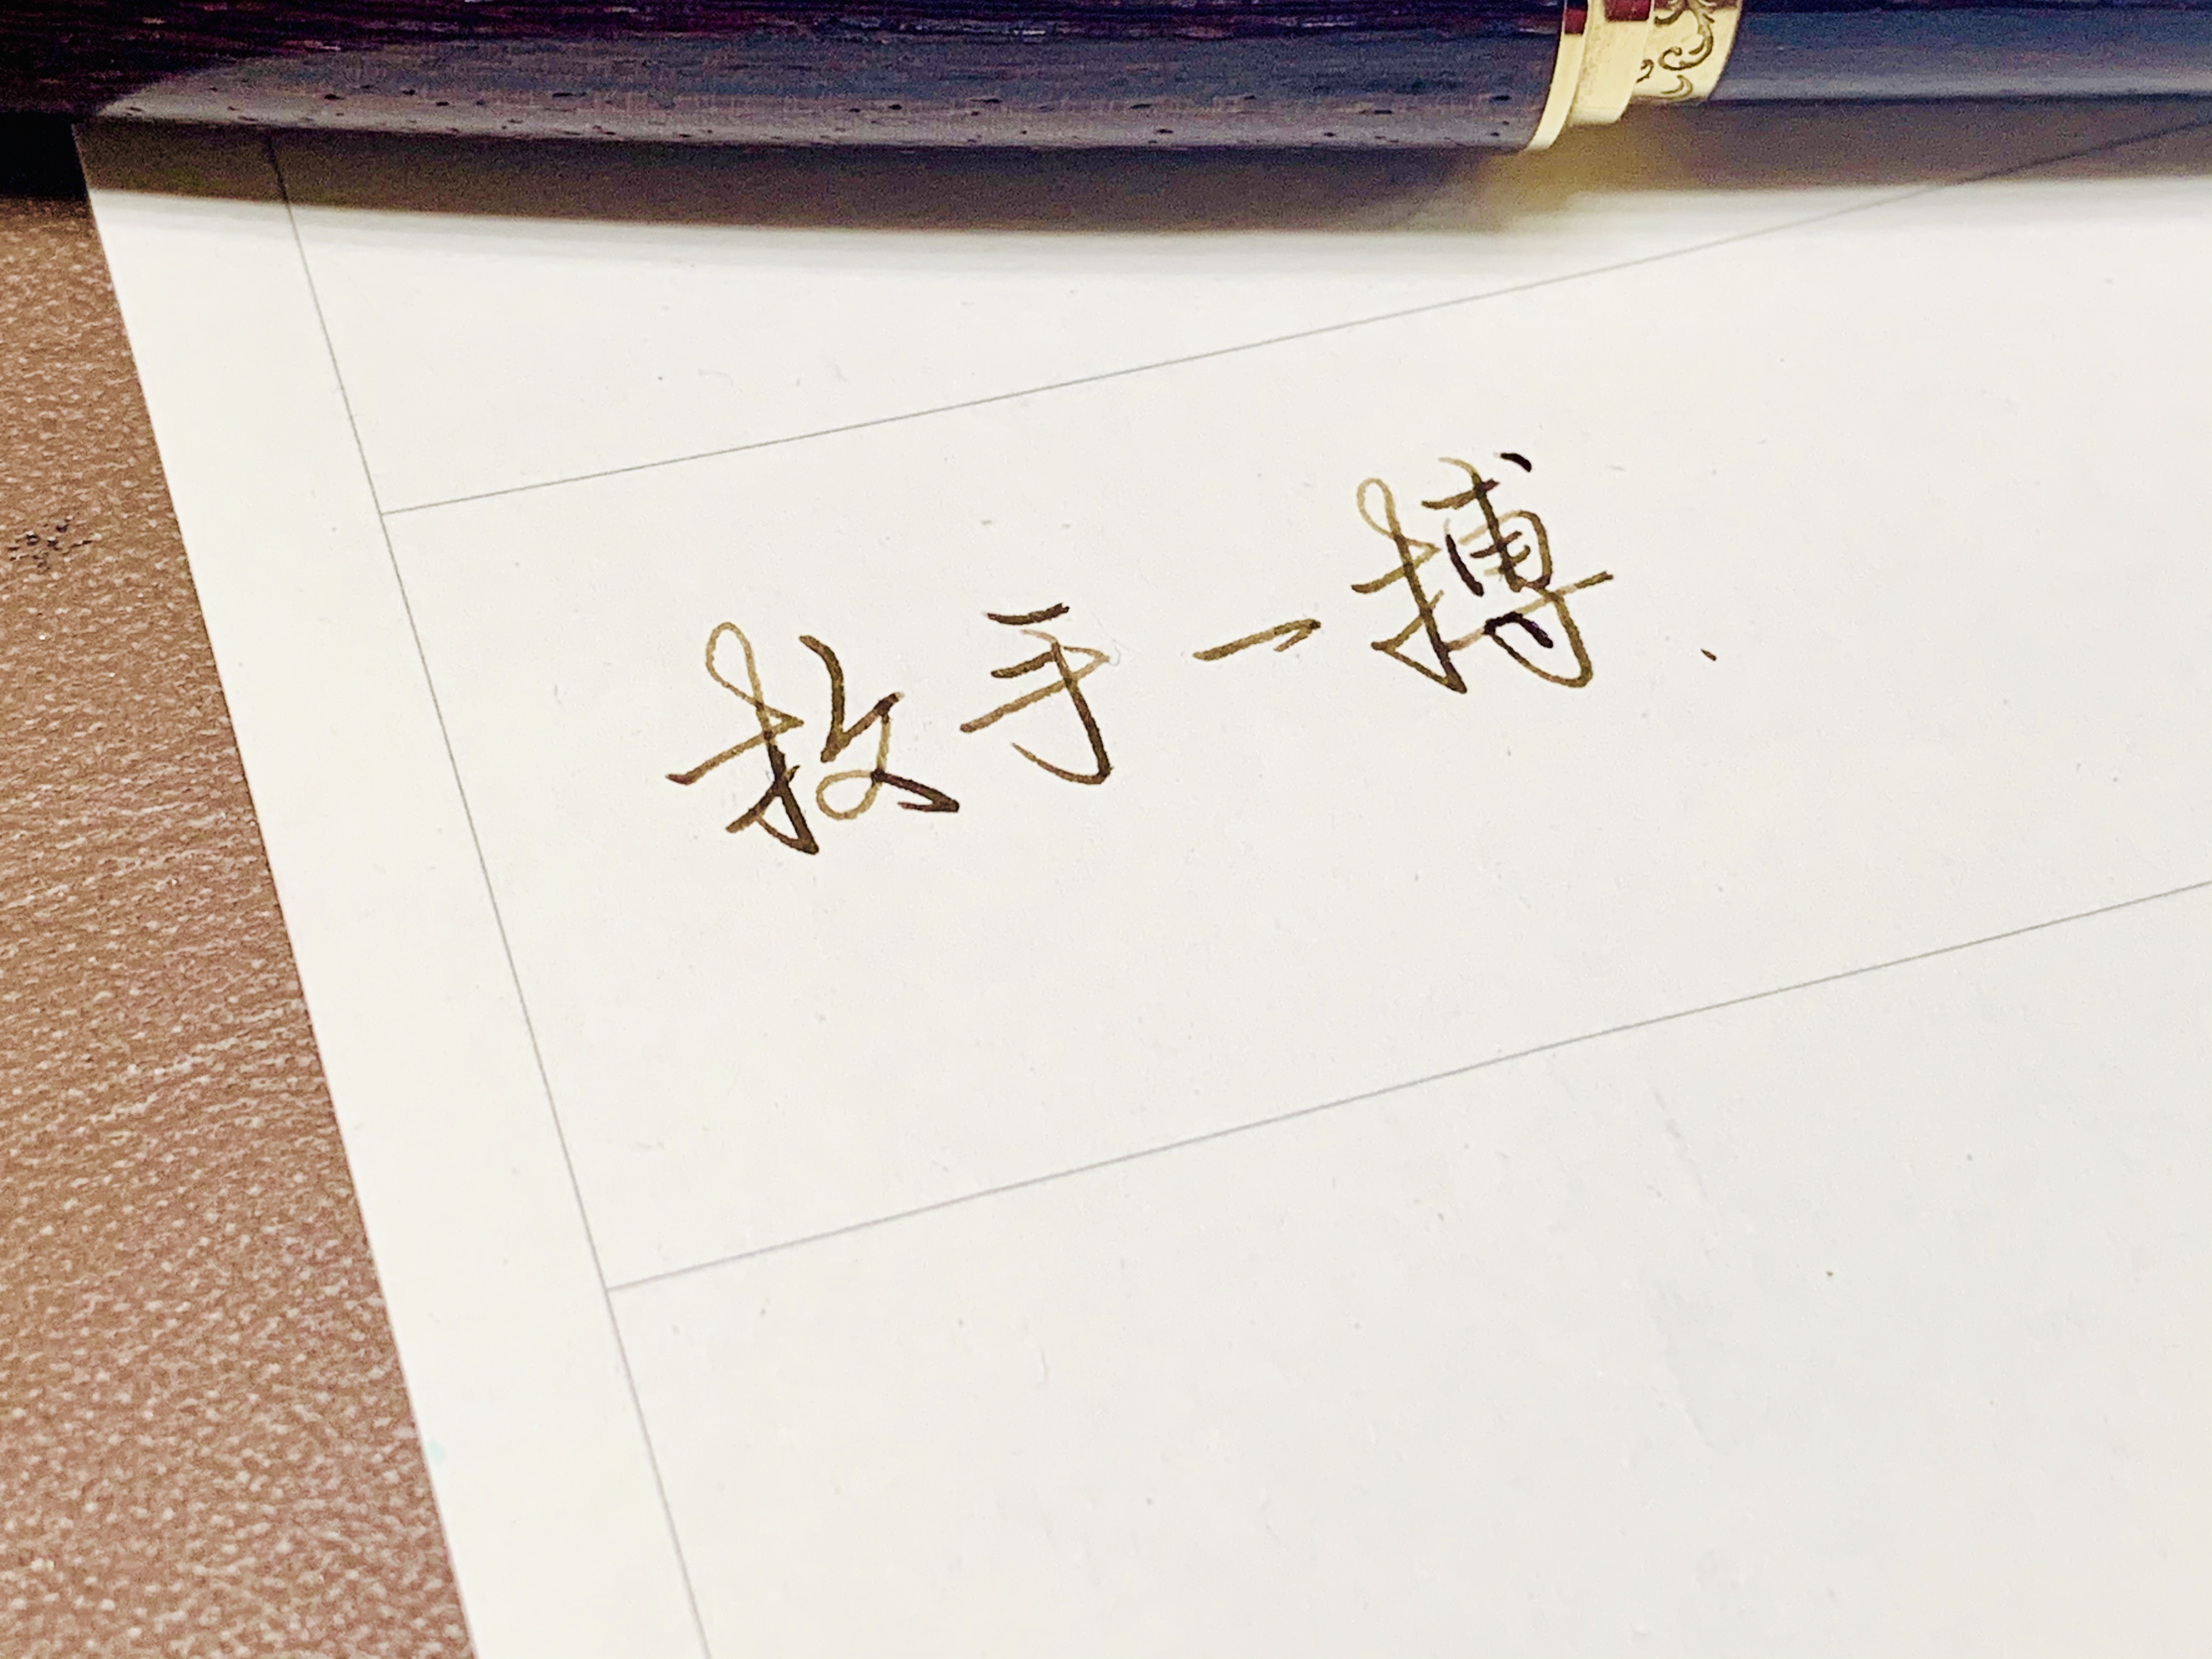 放手一搏.